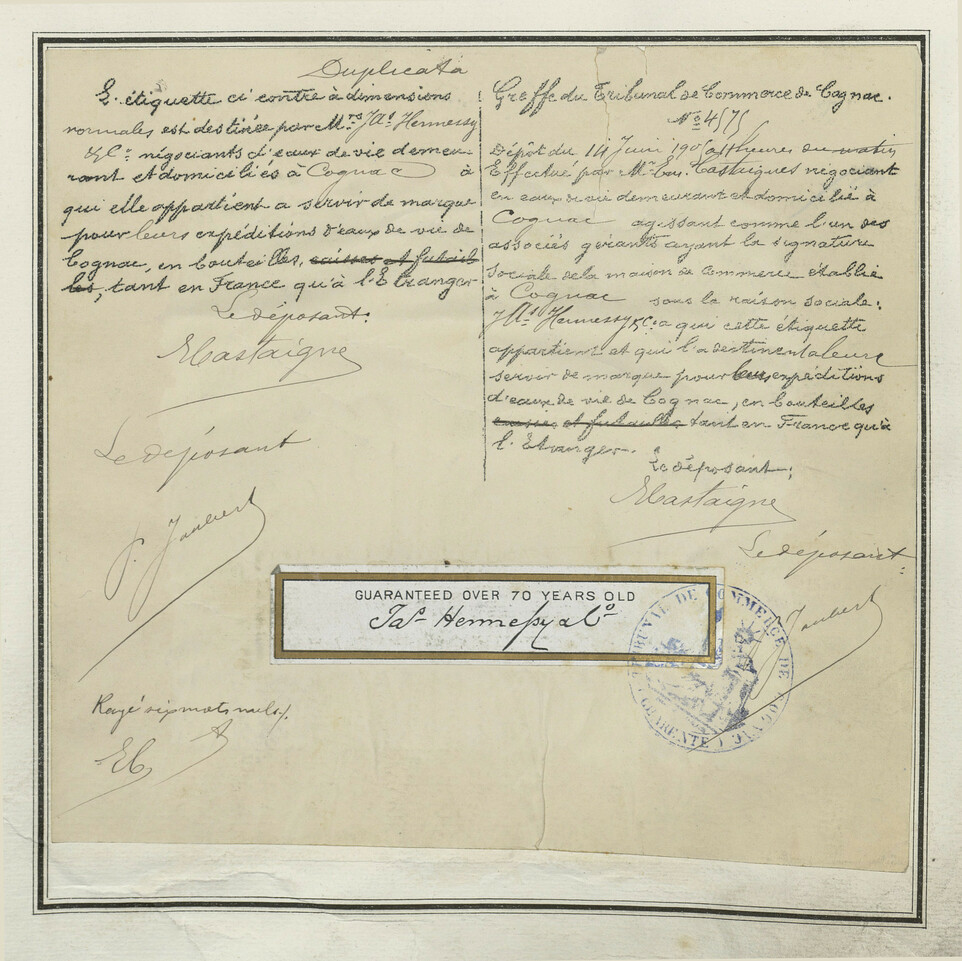 Duplicata
L'étiquette ci contre à dimensions
normales est destinée par Mrs Jas Hennessy
& Co négociants d'eaux de vie demeu-
rant et domiciliés à Cognac à
qui elle appartient a servir de marque
pour leurs expéditions d'eaux de vie de
Cognac, en bouteilles, caisses et futail
les, tant en France qu'à l'Etranger
Le déposant:
ECastaigne
Le déposant
P. Jaubert
Rayé six mots nuls
EC
Greffe du Tribunal de Commerce de Cognac.
No 4575
Dépôt du 14 Juin 190 heures du matin
Effectué par Mr Em. Castaignes négociant
en eaux de vie demeurant et domicilié à
Cognac agissant comme l'un des
associés gérants ayant la signature
sociale de la maison de commerce établie
à Cognac sous la raison sociale:
Jas Hennessy & Co a qui cette étiquette
appartient et qui l'a destinent a leurs
servir de marque pour leurs expéditions
d'eaux de vie de Cognac, en bouteilles
caisses et futailles tant en France qu'à
l'Etranger.
Le déposant:
ECastaigne
Le déposant
Jaubert
GUARANTEED OVER 70 YEARS OLD
Jas Hennessy & Co
TRIBUNAL DE COMMERCE DE COGNAC
(CHARENTE)